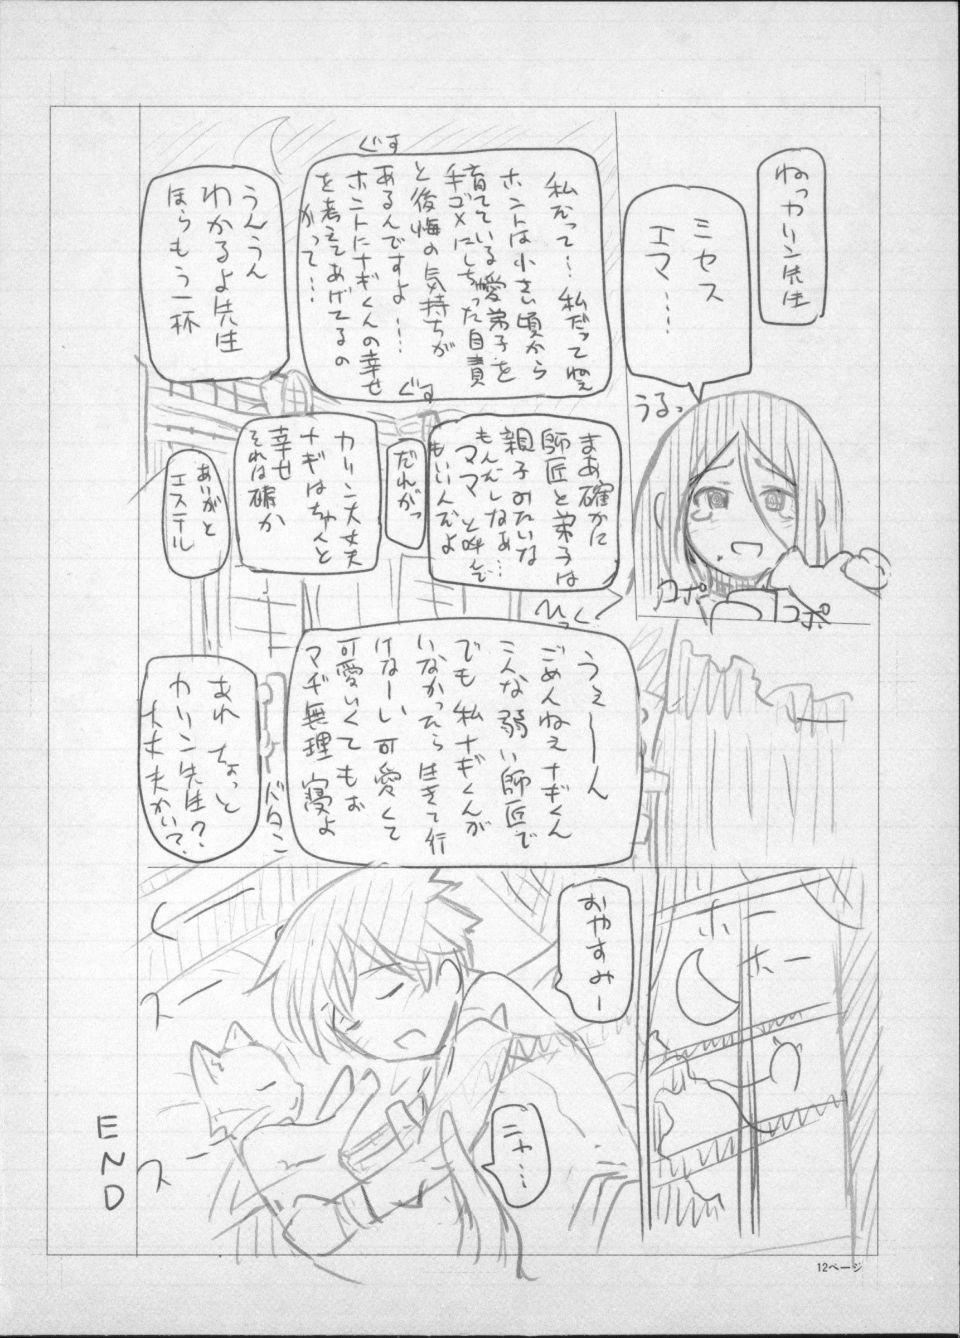 ねっカリン先生
ミセス
エマ…
うるっ
コポ
コポ
ぐす
私だって…私だってねぇ
ホントは小さい頃から
育てている愛弟子を
手ゴメにしちゃった自責
と後悔の気持ちが
あるんですよ…
ホントにナギくんの幸せ
を考えてあげてるの
かって…
ぐす
うんうん
わかるよ先生
ほらもう一杯
まあ確かに
師匠と弟子は
親子みたいな
もんだしなあ…
ママ と呼んで
もいいんだよ
だれがっ
カリン大丈夫
ナギはちゃんと
幸せ
それは確か
ありがと
エステル
ひっく
うぇーーん
ごめんねぇナギくん
こんな弱い師匠で
でも私ナギくんが
いなかったら生きて行
けなーい可愛くて
可愛いくてもお
マヂ無理 寝よ
ドタン
あれ ちょっと
カリン先生?
大丈夫かい?
ホー
ホー
おやすみー
ニャ…
くー
スー
スー
END
12ページ